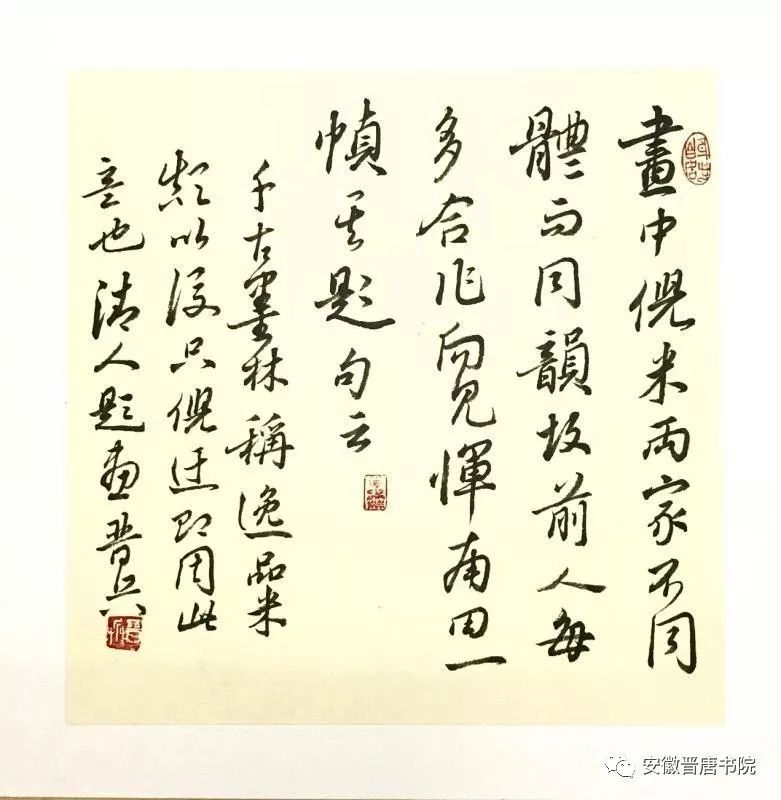 畫中倪米兩家不同
體而同韻故前人每
多合作向見惲南田一
幀其題句云
千古墨林稱逸品米
顛以後只倪迂即用此
意也清人題畫晉兵
安徽晋唐书院